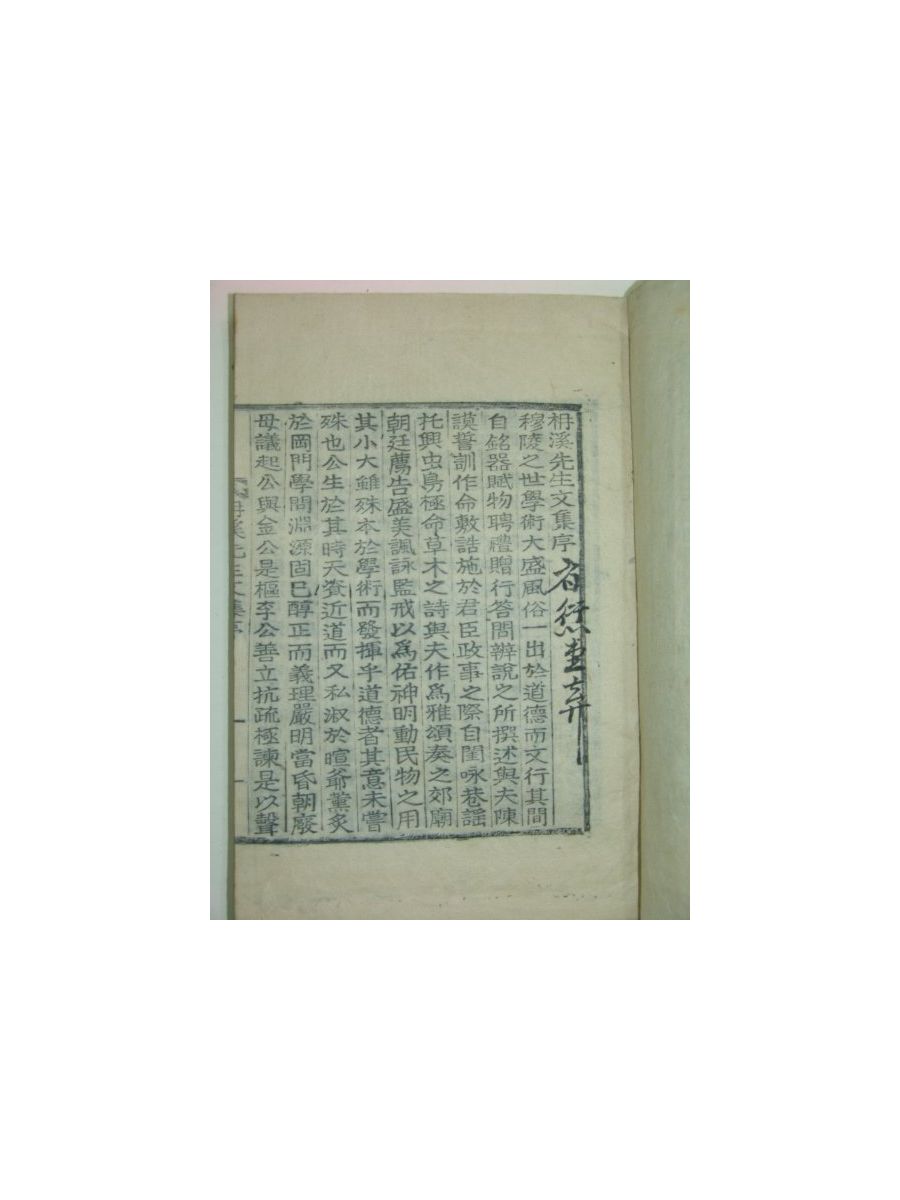 枏溪先生文集序
穆陵之世學術大盛風俗一出於道德而文行其間
自銘器賦物聘禮贈行答問辨說之所撰述與夫陳
謨誓訓作命敷誥施於君臣政事之際自閭咏巷謠
托興虫鳥極命草木之詩與夫作爲雅頌奏之郊廟
朝廷薦告盛美諷詠監戒以爲佑神明動民物之用
其小大雖殊本於學術而發揮乎道德者其意未嘗
殊也公生於其時天資近道而又私淑於暄爺薰炙
於岡門學問淵源固已醇正而義理嚴明當昏朝廢
母議起公與金公是樞李公善立抗疏極諫是以聲